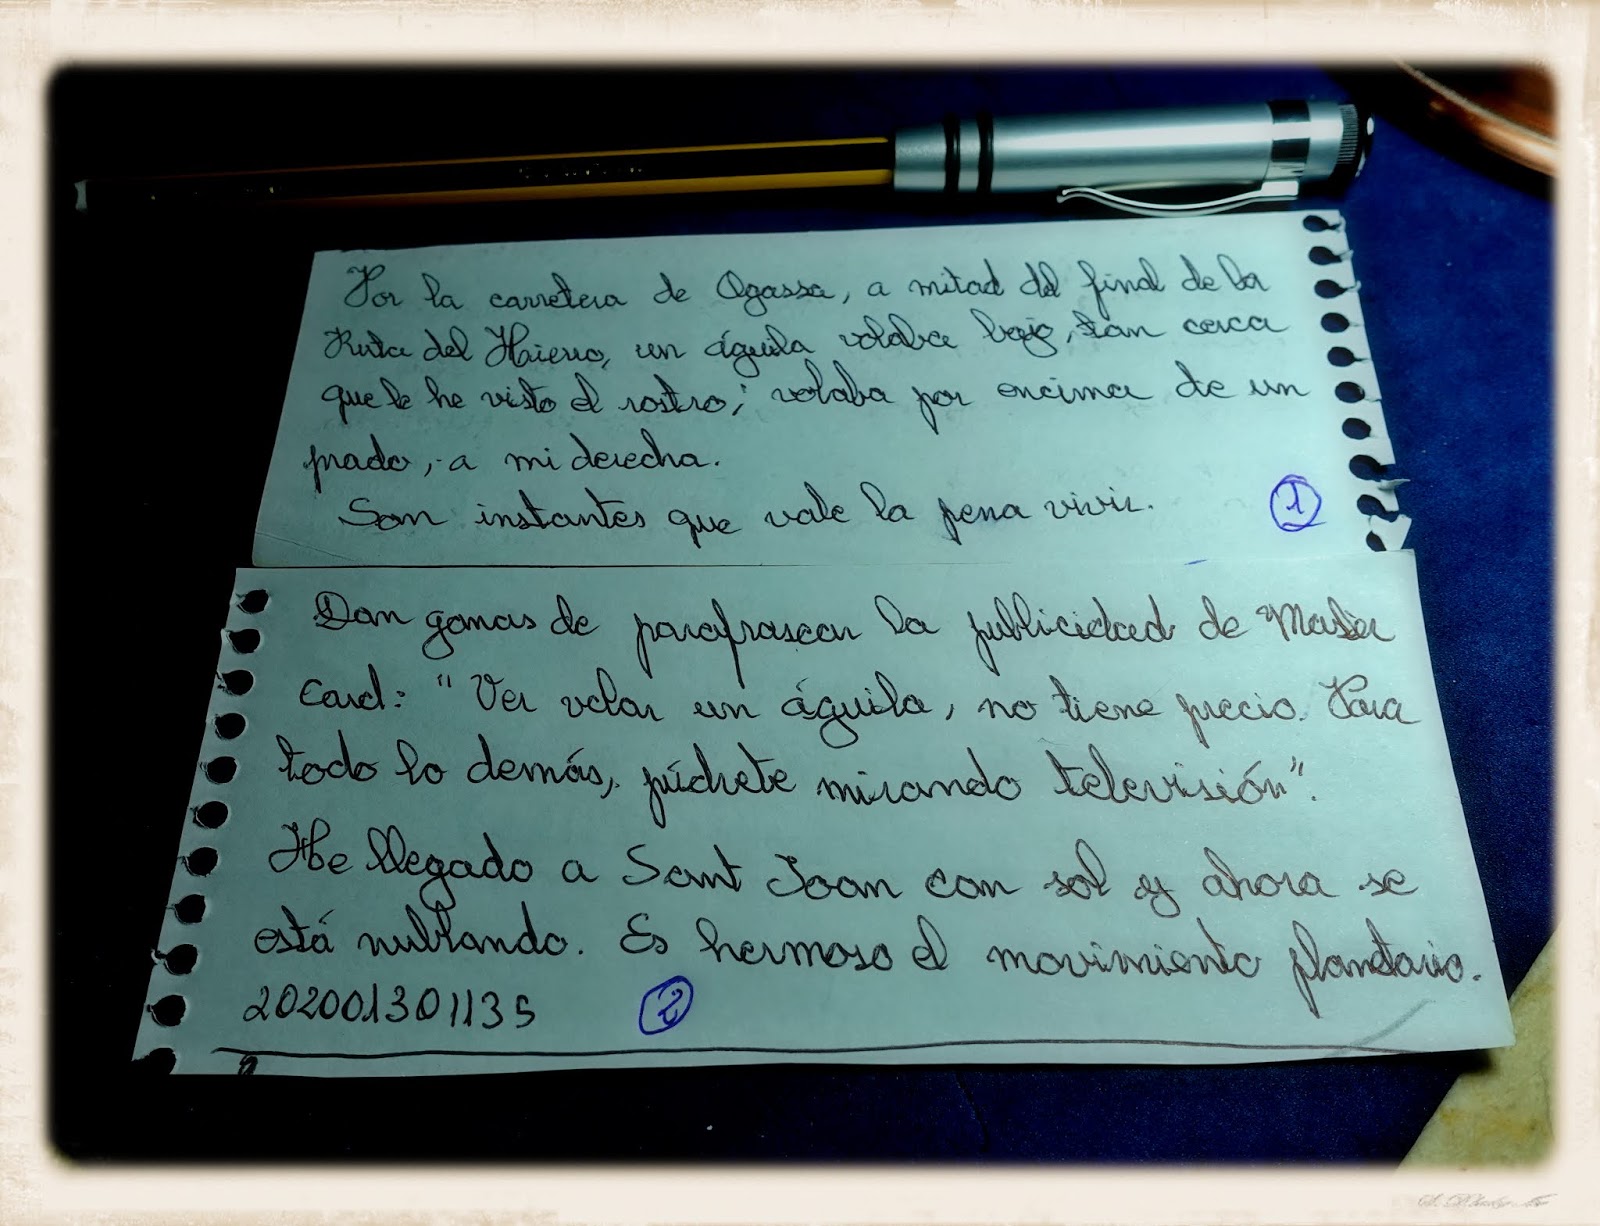 Por la carretera de Ogassa, a mitad del final de la
Ruta del Hierro, un águila volaba bajo, tan cerca
que le he visto el rostro; volaba por encima de un
prado, a mi derecha.
Son instantes que vale la pena vivir.
1
Dan ganas de parafrasear la publicidad de Master
Card: "Ver volar un águila, no tiene precio. Para
todo lo demás, púdrete mirando televisión".
He llegado a Sant Joan con sol y ahora se
está nublando. Es hermoso el movimiento planetario.
202001301135
2